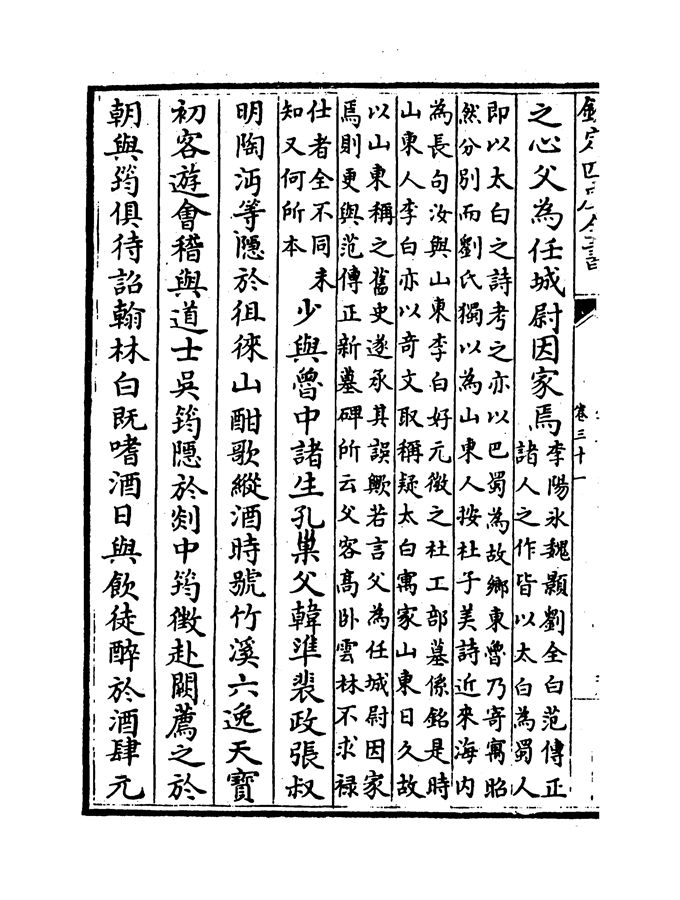 欽定四庫全書
卷三十一
之心父為任城尉因家焉
李陽氷魏顥劉全白范傳正
諸人之作皆以太白為蜀人
即以太白之詩考之亦以巴蜀為故鄉東魯乃寄寓昭
然分別而劉氏獨以為山東人按杜子美詩近來海内
為長句汝與山東李白好元微之杜工部墓係銘是時
山東人李白亦以奇文取稱疑太白寓家山東日久故
以山東稱之舊史遂承其誤歟若言父為任城尉因家
焉則更與范傳正新墓碑所云父客高卧雲林不求禄
仕者全不同未
知又何所本
少與魯中諸生孔巢父韓準裴政張叔
明陶沔等隱於徂徠山酣歌縱酒時號竹溪六逸天寶
初客遊會稽與道士吳筠隱於剡中筠徵赴闕薦之於
朝與筠俱待詔翰林白既嗜酒日與飲徒醉於酒肆元